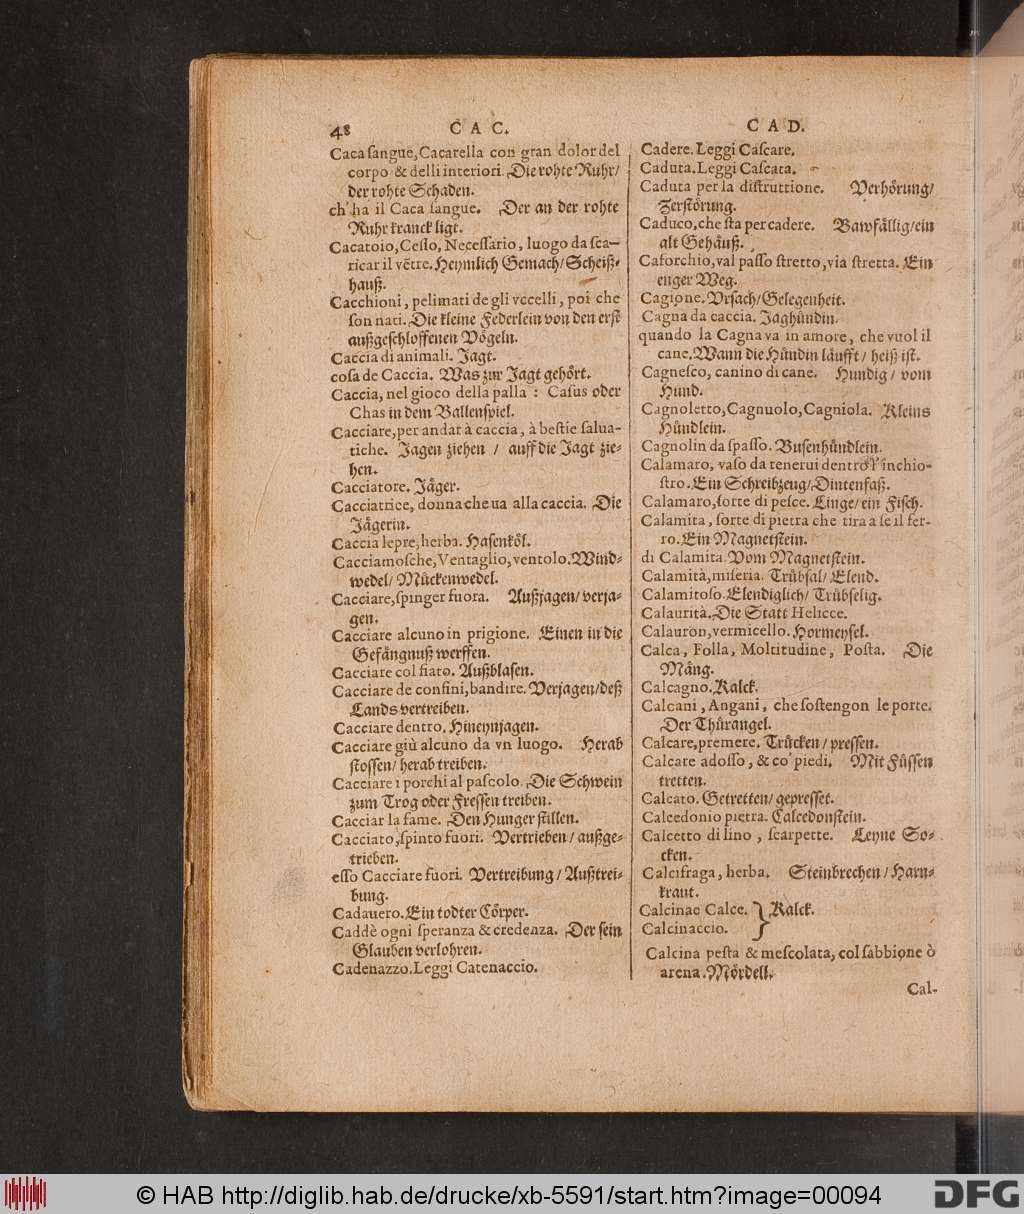 48 CAC.
Caca ſangue, Cacarella con gran dolor del
corpo & delli interiori. Die rohte Ruhr/
der rohte Schaden.
ch'ha il Caca ſangue. Der an der rohte
Ruhr kranck ligt.
Cacatoio, Ceſſo, Neceſſario, luogo da ſca-
ricar il vẽtre. Heymlich Gemach/Scheiß-
hauß.
Cacchioni, pelimati de gli vccelli, poi che
ſon nati. Die kleine Federlein von den erſt
außgeſchloffenen Vögeln.
Caccia di animali. Jagt.
coſa de Caccia. Was zur Jagt gehört.
Caccia, nel gioco della palla : Caſus oder
Chas in dem Ballenſpiel.
Cacciare, per andar à caccia, à beſtie ſalua-
tiche. Jagen ziehen / auff die Jagt zie-
hen.
Cacciatore. Jäger.
Cacciatrice, donna che ua alla caccia. Die
Jägerin.
Caccia lepre, herba. Haſenköl.
Cacciamoſche, Ventaglio, ventolo. Wind-
wedel/ Mückenwedel.
Cacciare, ſpinger fuora. Außjagen/ verja-
gen.
Cacciare alcuno in prigione. Einen in die
Gefängnuß werffen.
Cacciare col fiato. Außblaſen.
Cacciare de confini, bandire. Verjagen/deß
Lands vertreiben.
Cacciare dentro. Hineynjagen.
Cacciare giù alcuno da vn luogo. Herab
ſtoſſen/ herab treiben.
Cacciare i porchi al paſcolo. Die Schwein
zum Trog oder Freſſen treiben.
Cacciar la fame. Den Hunger ſtillen.
Cacciato, ſpinto fuori. Vertrieben / außge-
trieben.
eſſo Cacciare fuori. Vertreibung / Außtrei-
bung.
Cadauero. Ein todter Cörper.
Caddè ogni ſperanza & credenza. Der ſein
Glauben verlohren.
Cadenazzo. Leggi Catenaccio.
CAD.
Cadere. Leggi Caſcare.
Caduta. Leggi Caſcata.
Caduta per la diſtruttione. Verhörung/
Zerſtörung.
Caduco, che ſta per cadere. Bawfällig/ein
alt Gehäuß.
Caforchio, val paſſo ſtretto, via ſtretta. Ein
enger Weg.
Cagione. Vrſach/Gelegenheit.
Cagna da caccia. Jaghündin.
quando la Cagna va in amore, che vuol il
cane. Wann die Hündin läufft / heiß iſt.
Cagneſco, canino di cane. Hundig / vom
Hund.
Cagnoletto, Cagnuolo, Cagniola. Kleins
Hündlein.
Cagnolin da ſpaſſo. Buſenhündlein.
Calamaro, vaſo da tenerui dentro l'inchio-
ſtro. Ein Schreibzeug/Dintenfaß.
Calamaro, ſorte di peſce. Linge/ ein Fiſch.
Calamita, ſorte di pietra che tira a ſe il fer-
ro. Ein Magnetſtein.
di Calamita. Vom Magnetſtein.
Calamità, miſeria. Trübſal/ Elend.
Calamitoſo. Elendiglich/ Trübſelig.
Calaurità. Die Statt Helicce.
Calauron, vermicello. Hormeyſel.
Calca, Folla, Moltitudine, Poſta. Die
Mäng.
Calcagno. Kalck.
Calcani, Angani, che ſoſtengon le porte.
Der Thürangel.
Calcare, premere. Trücken / preſſen.
Calcare adoſſo, & co' piedi. Mit Füſſen
tretten.
Calcato. Getretten/ gepreſſet.
Calcedonio pietra. Calcedonſtein.
Calcetto di lino, ſcarpette. Leyne So-
cken.
Calcifraga, herba. Steinbrechen / Harn-
kraut.
Calcinae Calce. } Kalck.
Calcinaccio.
Calcina peſta & meſcolata, col ſabbione ò
arena. Mördell.
Cal-
© HAB http://diglib.hab.de/drucke/xb-5591/start.htm?image=00094
DFG